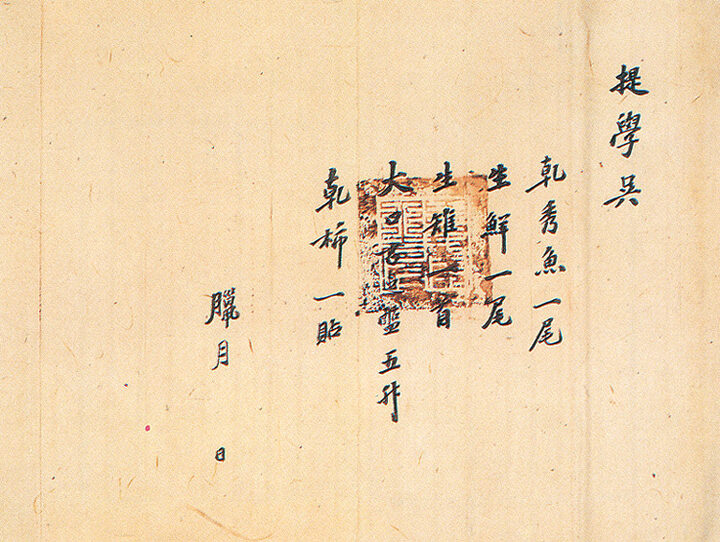 提學吳
乾秀魚一尾
生鮮一尾
生雉一首
大口
盬五升
乾柿一貼
臘月 日